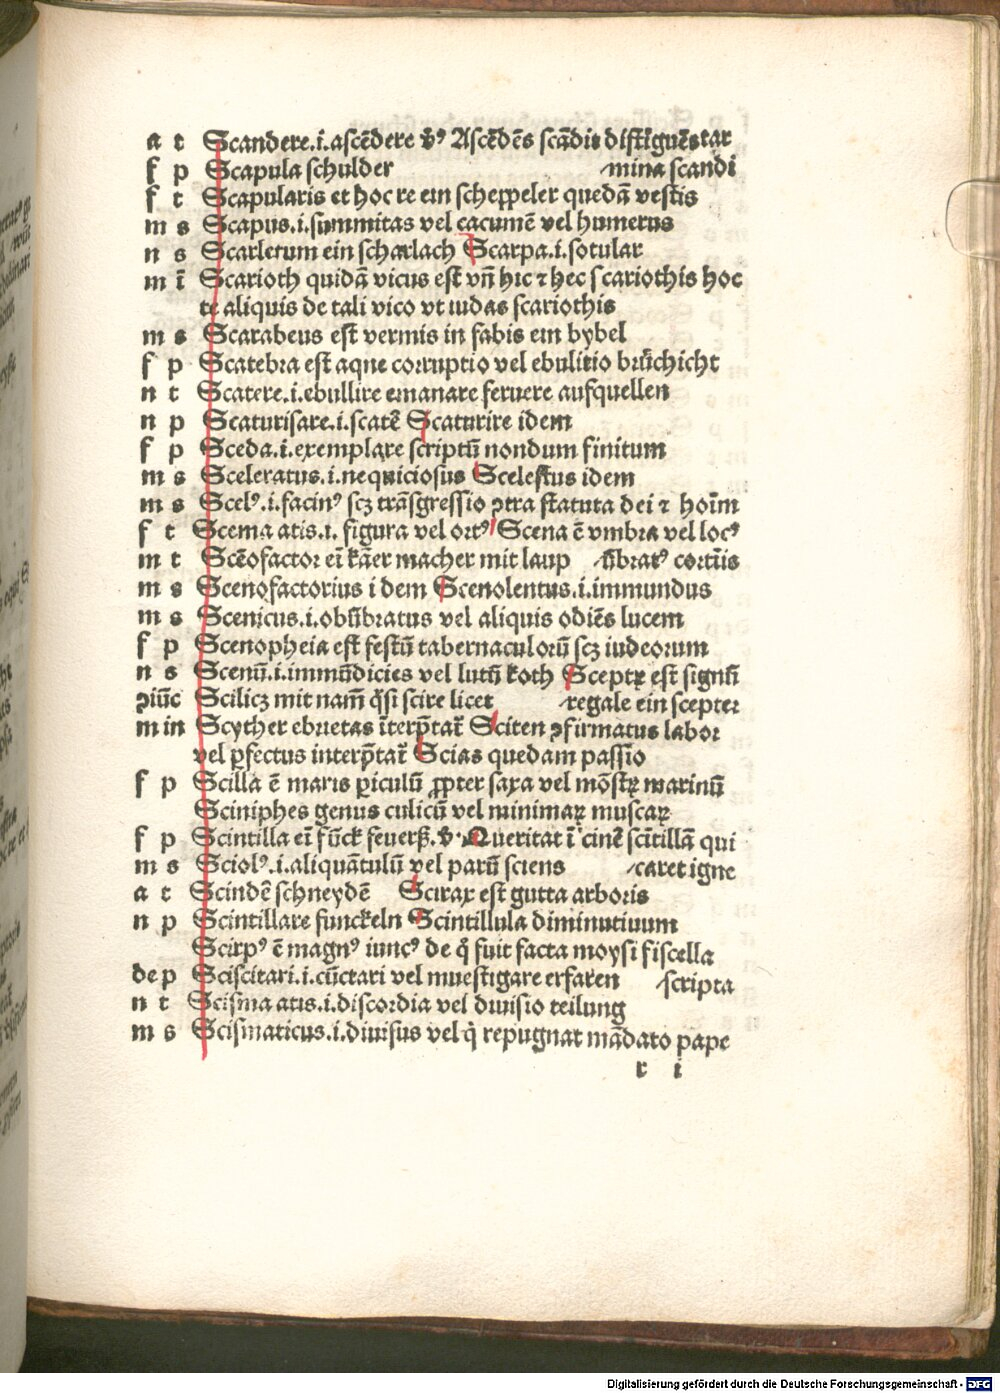 a t Scandere.i.ascēdere v̄ꝰ Ascēdēs scādis distīguēs car
f p Scapula schulder mina scandi
f t Scapularis et hoc re ein scheppeler quedā vestis
m s Scapus.i.summitas vel cacumē vel humerus
n s Scarletum ein scharlach Scarpa.i.sotular
m ī Scarioth quidā vicus est vn̄ hic ⁊ hec scariothis hoc
te aliquis de tali vico vt iudas scariothis
m s Scarabeus est vermis in fabis ein bybel
f p Scatebra est aque corruptio vel ebulitio brüchicht
n t Scatere.i.ebullire emanare feruere aufquellen
n p Scaturisare.i.scatē Scaturire idem
f p Sceda.i.exemplare scriptū nondum finitum
m s Sceleratus.i.nequiciosus Scelestus idem
m s Scelꝰ.i.facinꝰ scꝫ trāsgressio ꝯtra statuta dei ⁊ hoīm
f t Scema atis.i. figura vel ortꝰ Scena ē vmbra vel locꝰ
m t Scēofactor eī kāer macher mit laup ūbratꝰ cortīis
m s Scenofactorius i dem Scenolentus.i.immundus
m s Scenicus.i.obūbratus vel aliquis odiēs lucem
f p Scenopheia est festū tabernaculorū scꝫ iudeorum
n s Scenū.i.immūdicies vel lutū koth Sceptꝝ est signū
ꝯiūc Scilicꝫ mit nam̄ q̄si scire licet regale ein scepter
m in Scyther ebrietas īterp̄tat̄ Sciten ꝯfirmatus labor
vel ꝑfectus interp̄tat̄ Scias quedam passio
f p Scilla ē maris ꝑiculū ꝓpter saxa vel mōstꝝ marinū
Sciniphes genus culicū vel minimaꝝ muscaꝝ
f p Scintilla eī fūck feuerß.v̄. Queritat ī cinē scītillā qui
m s Sciolꝰ.i.aliquātulū vel parū sciens caret igne
a t Scindē schneydē Scirax est gutta arboris
n p Scintillare funckeln Scintillula diminutiuum
Scirpꝰ ē magnꝰ iuncꝰ de q̄ fuit facta moysi fiscella
de p Sciscitari.i.cūctari vel inuestigare erfaren scripta
n t Scisma atis.i.discordia vel diuisio teilung
m s Scismaticus.i.diuisus vel q̄ repugnat mādato pape
r i
Digitalisierung gefördert durch die Deutsche Forschungsgemeinschaft - DFG